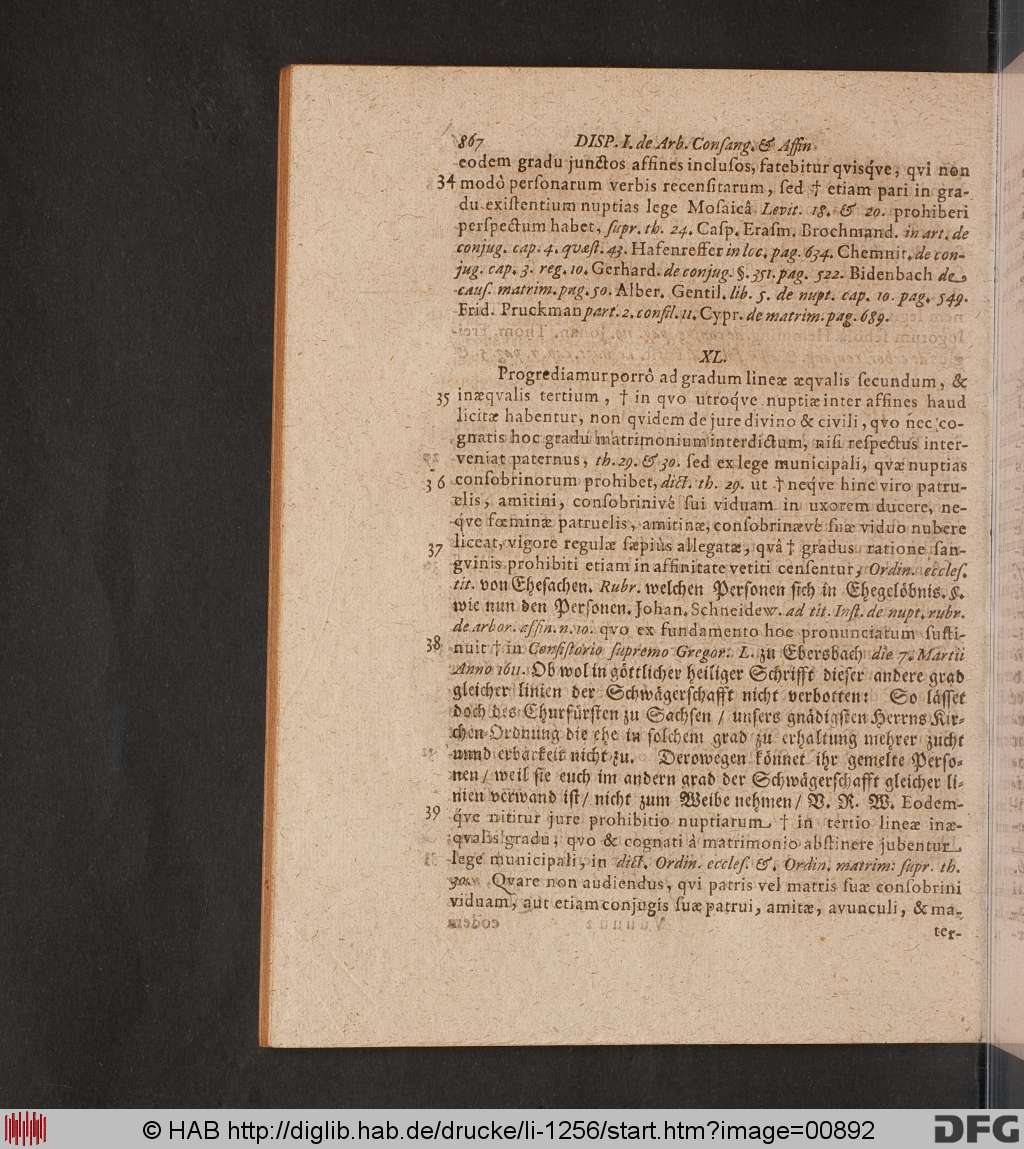 867 DISP. I. de Arb. Consang. & Affin.
eodem gradu junctos affines inclusos, fatebitur qvisq́ve, qvi non
34 modò personarum verbis recensitarum, sed † etiam pari in gra-
du existentium nuptias lege Mosaicâ Levit. 18. & 20. prohiberi
perspectum habet, supr. th. 24. Casp. Erasm. Brochmand. in art. de
conjug. cap. 4. qvæst. 43. Hafenreffer in loc. pag. 634. Chemnit. de con-
jug. cap. 3. reg. 10. Gerhard. de conjug. §. 351. pag. 522. Bidenbach de
caus. matrim. pag. 50. Alber. Gentil. lib. 5. de nupt. cap. 10. pag. 549.
Frid. Pruckman part. 2. consil. 11. Cypr. de matrim. pag. 689.
XL.
Progrediamur porrò ad gradum lineæ æqvalis secundum, &
35 inæqvalis tertium, † in qvo utroq́ve nuptiæ inter affines haud
licitæ habentur, non qvidem de jure divino & civili, qvo nec co-
gnatis hoc gradu matrimonium interdictum, nisi respectus inter-
veniat paternus, th. 29. & 30. sed ex lege municipali, qvæ nuptias
36 consobrinorum prohibet, dict. th. 29. ut † neqve hinc viro patru-
elis, amitini, consobriniv́e sui viduam in uxorem ducere, ne-
q́ve fœminæ patruelis, amitinæ, consobrinæv́e suæ viduo nubere
37 liceat, vigore regulæ sæpiùs allegatæ, qvâ † gradus ratione san-
gvinis prohibiti etiam in affinitate vetiti censentur, Ordin. eccles.
tit. von Ehesachen. Rubr. welchen Personen sich in Ehegelöbnis. §.
wie nun den Personen. Johan. Schneidew. ad tit. Inst. de nupt. rubr.
de arbor. affin. n. 10. qvo ex fundamento hoc pronunciatum susti-
38 nuit † in Consistorio supremo Gregor. L. zu Ebersbach die 7. Martii
Anno 1611. Ob wol in göttlicher heiliger Schrifft dieser andere grad
gleicher linien der Schwägerschafft nicht verbotten: So lässet
doch des Churfürsten zu Sachsen / unsers gnädigsten Herrns Kir-
chen-Ordnung die ehe in solchem grad zu erhaltung mehrer zucht
unnd erbarkeit nicht zu. Derowegen könnet ihr gemelte Perso-
nen / weil sie euch im andern grad der Schwägerschafft gleicher li-
nien verwand ist / nicht zum Weibe nehmen / V. R. W. Eodem-
39 q́ve nititur jure prohibitio nuptiarum † in tertio lineæ inæ-
qvalis gradu, qvo & cognati à matrimonio abstinere jubentur
lege municipali, in dict. Ordin. eccles. &. Ordin. matrim: supr. th.
30. Qvare non audiendus, qvi patris vel matris suæ consobrini
viduam, aut etiam conjugis suæ patrui, amitæ, avunculi, & ma-
ter-
© HAB http://diglib.hab.de/drucke/li-1256/start.htm?image=00892
DFG